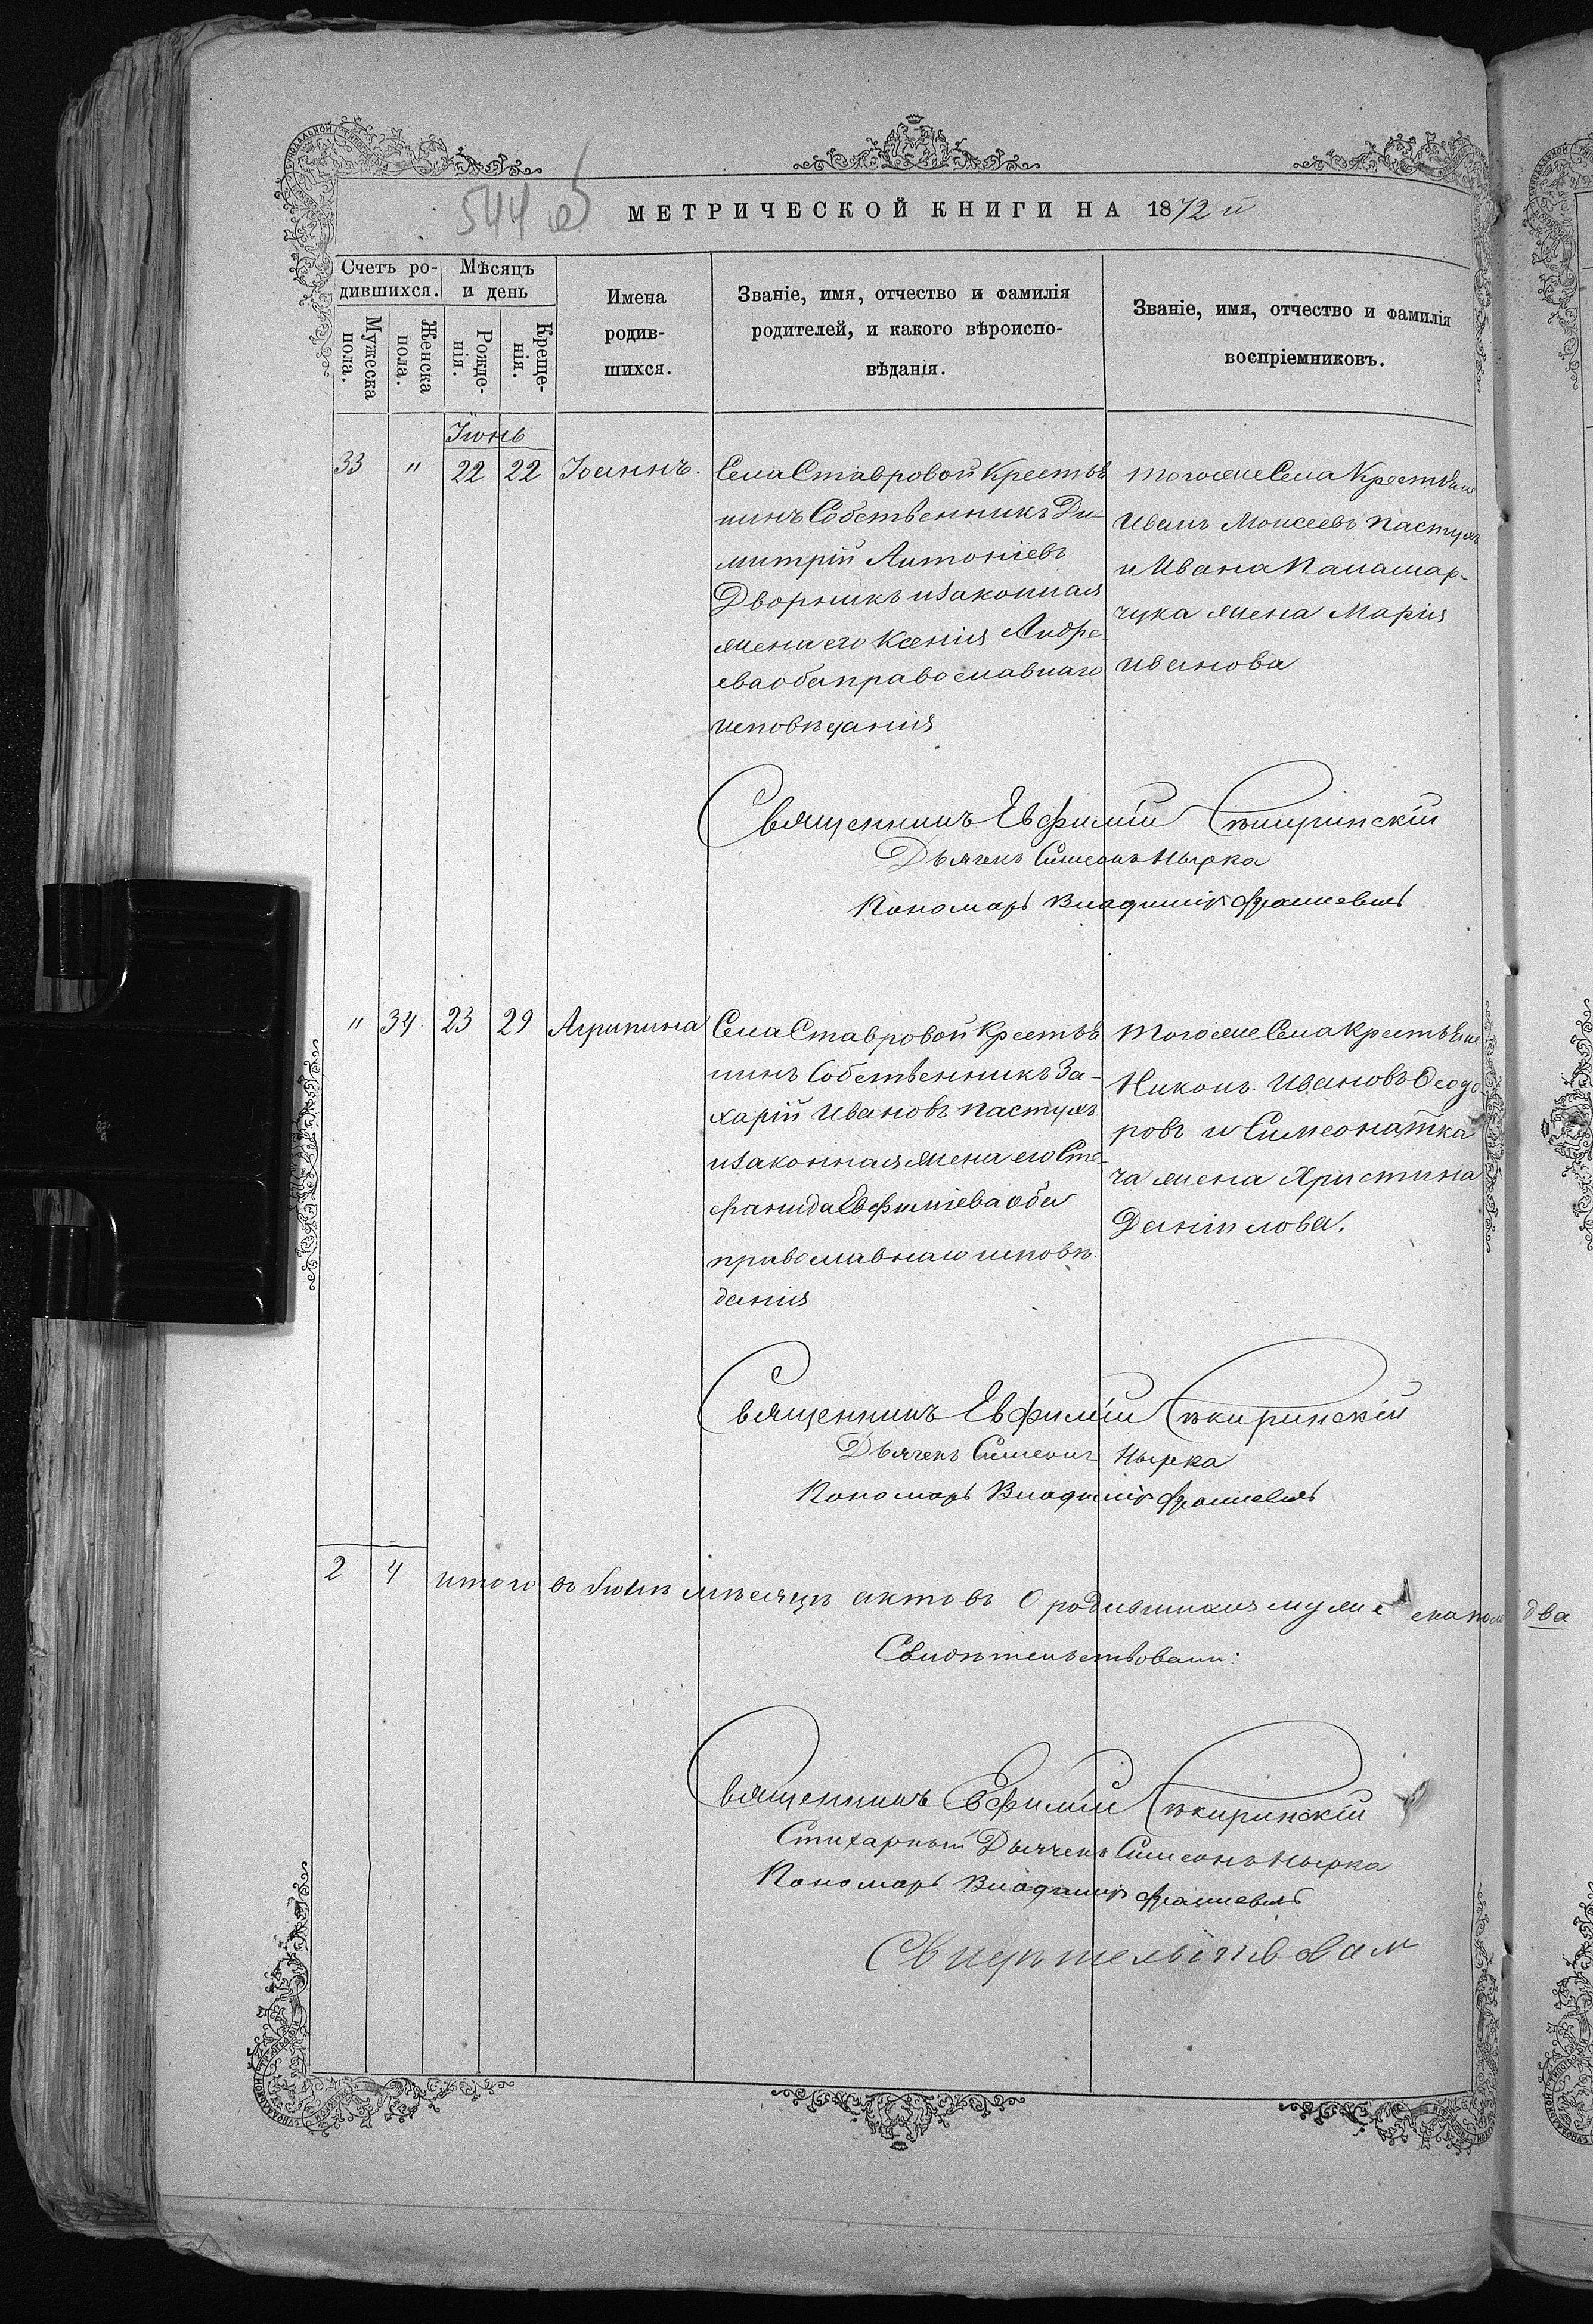 544 об
МЕТРИЧЕСКОЙ КНИГИ НА 1872 й
Счетъ ро-
дившихся.
Мѣсяцъ
и день
Мужеска
пола.
Женска
пола.
Рожде-
нія.
Креще-
нія.
Имена
родив-
шихся.
Званіе, имя, отчество и фамилія
родителей, и какого вѣроиспо-
вѣданія.
Званіе, имя, отчество и фамилія
воспріемниковъ.
Іюнь
33 " 22 22 Іоаннъ.
Села Ставровой Крестья
нинъ Собственникъ Ди-
митрій Антоніевъ
Дворникъ и законная
жена его Ксенія Андре-
ева оба православнаго
исповѣданія
тогоже Села Крестьяне
Иванъ Моисеевъ Пастухъ
и Ивана Паламар-
чука жена Марія
Иванова
Священникъ Евфимій Сѣкиринскій
Дьячекъ Симеонъ Нырка
Пономарь Владиміръ
" 34 23 29 Агрипина
Села Ставровой Крестья
нинъ Собственникъ За-
харій Ивановъ Пастухъ
и законная жена его Сте-
фанида Евфиміева оба
православнаго исповѣ-
данія
тогоже Села Крестьяне
Никонъ Ивановъ Ѳеодо-
ровъ и Симеона Тка-
ча жена Христина
Даніилова.
Священникъ Евфимій Сѣкиринскій
Дьячекъ Симеонъ Нырка
Пономарь Владиміръ
2 4 итого въ Іюнѣ мѣсяцѣ актовъ о родившихся мужескапола два
Свидѣтельствовали:
Священникъ Евфимій Сѣкиринскій
Стихарный Дьячекъ Симеонъ Нырка
Пономарь Владиміръ
Свидѣтельствовал